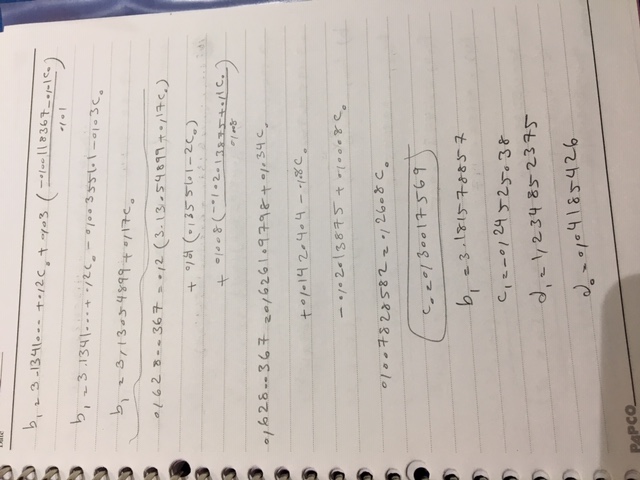 b₁ = 3.1341000 + 0,2C₀ + 0,03 (-0,00118367 - 0,01C₀ / 0,01)
b₁ = 3.1341000 + 0,2C₀ - 0,0035501 - 0,03C₀
b₁ = 3,13054899 + 0,17C₀
0,62800367 = 0,2 (3.13054899 + 0,17C₀)
+ (0,355101 - 2C₀)
+ 0,008 (-0,02013875 + 0,1C₀ / 0,008)
0,62800367 = 0,626109798 + 0,034C₀
+ 0,01420404 - 0,08C₀
- 0,02013875 + 0,0008C₀
0,007828582 = 0,2608C₀
C₀ = 0,30017569
b₁ = 3.181578857
C₁ = -0,24525038
d₁ = 1,234852375
d₀ = 0,04185426
PAPCO